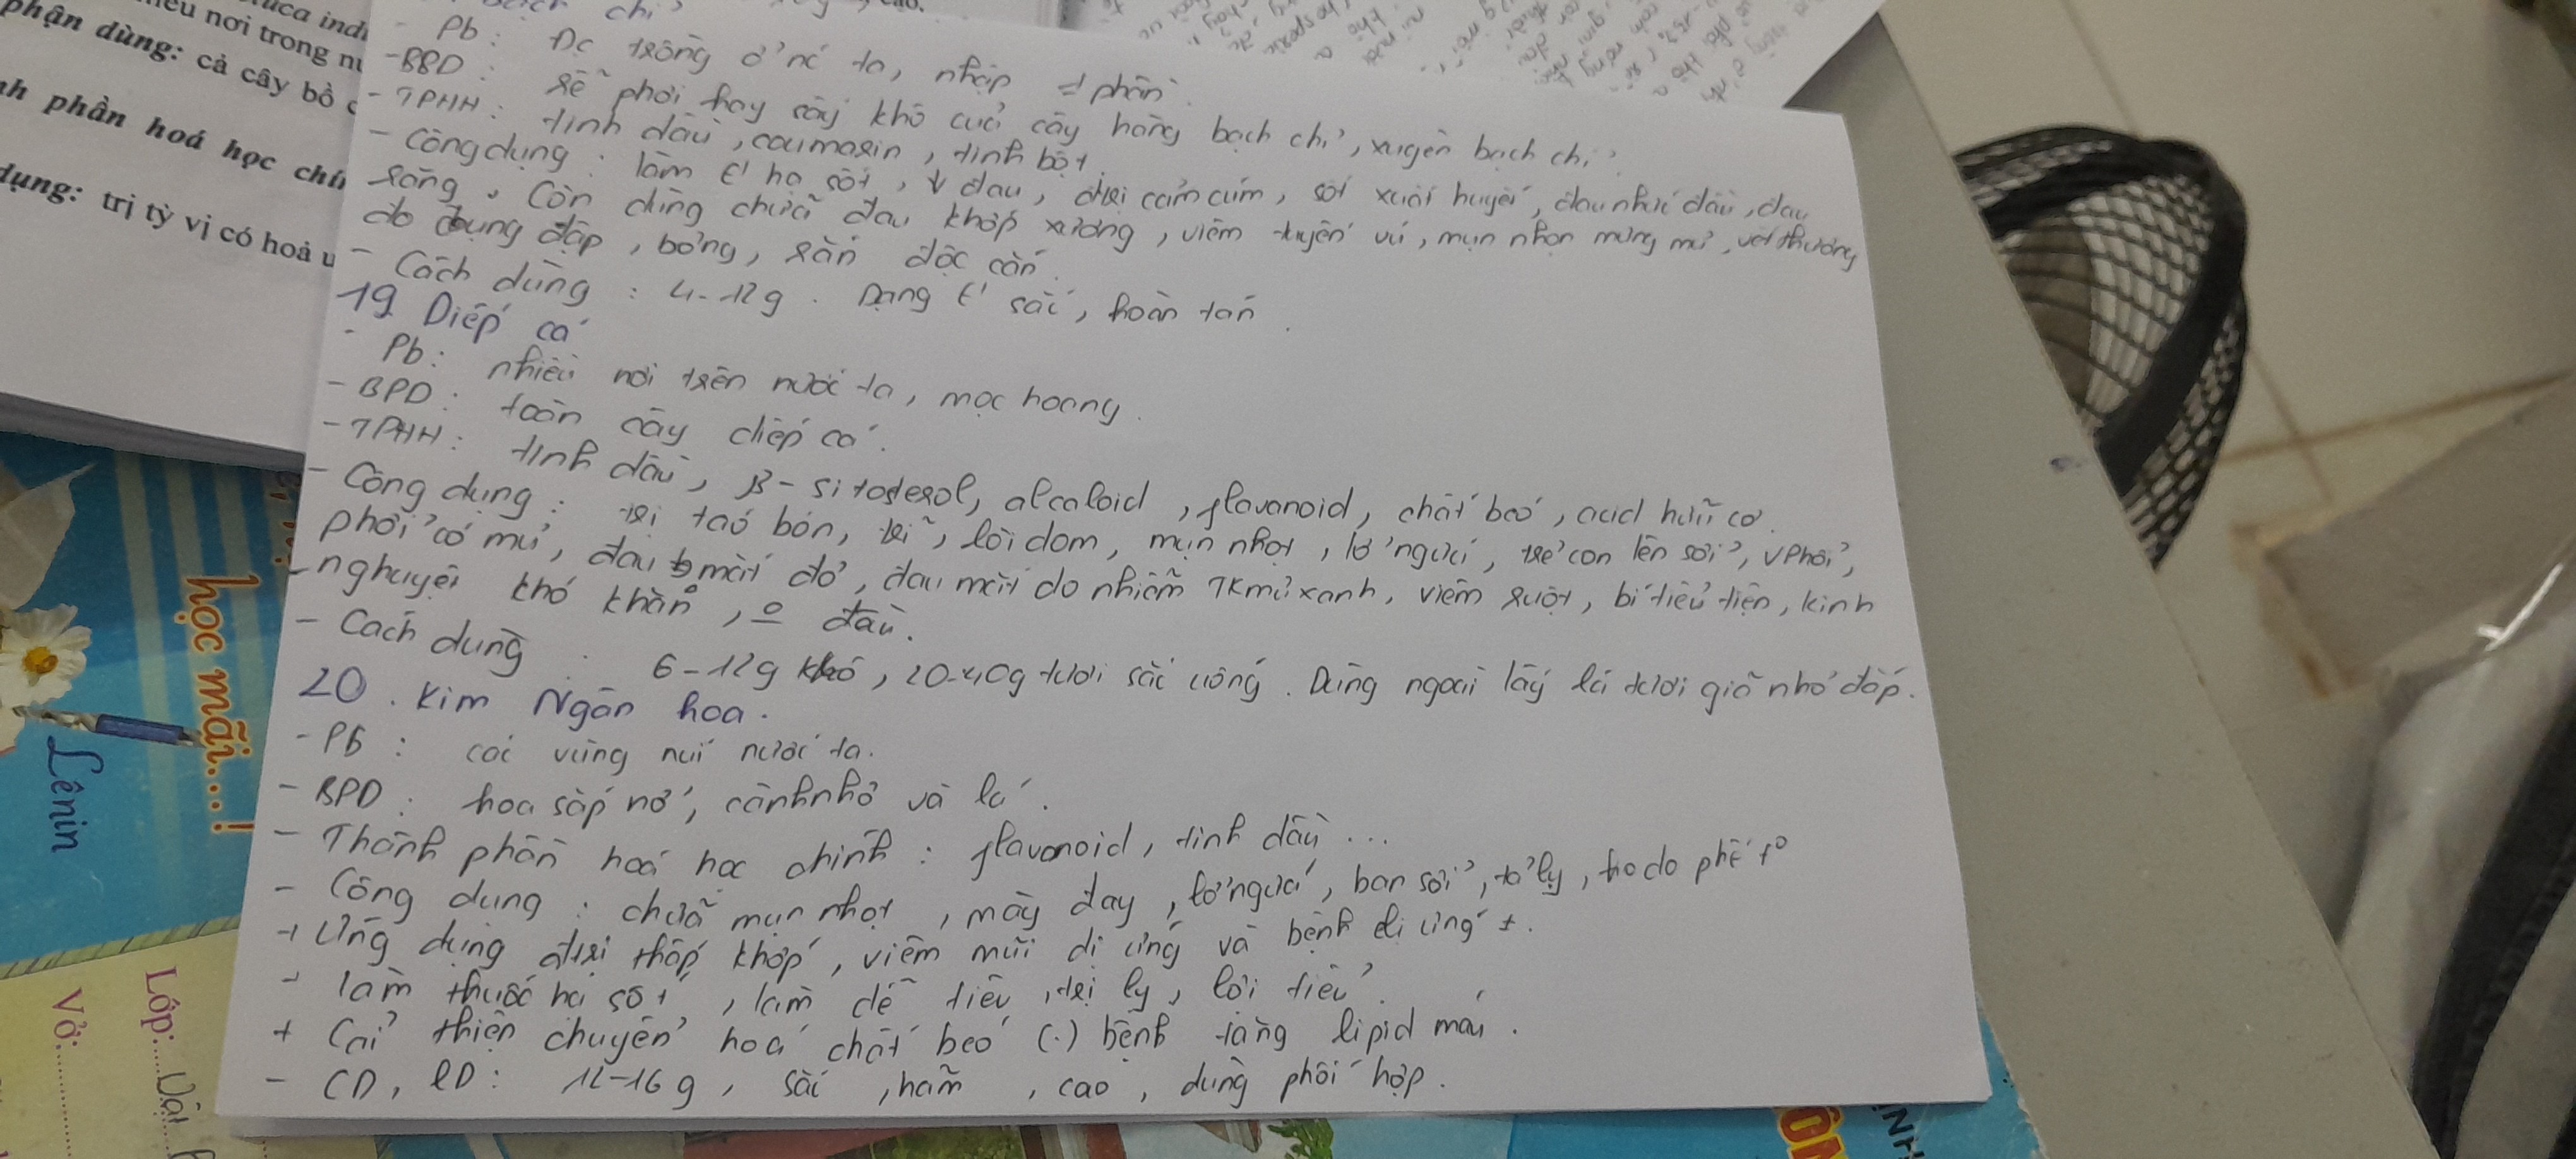 phận dùng: cả cây bồ c
nơi trong nu
nh phần hoá học chí
dụng: trị tỳ vị có hoả u
- Pb: Đc trồng ở nc ta, nhập 1 phần.
- BPD: rễ phơi hay sấy khô của cây hàng bạch chỉ, xuyên bạch chỉ.
- TPHH: tinh dầu, coumarin, tinh bột.
- Công dụng: làm t' hạ sốt, ↓ đau, đtrị cảm cúm, sốt xuất huyết, đau nhức đầu, đau
răng. Còn dùng chữa đau khớp xương, viêm tuyến vú, mụn nhọn mưng mủ, vết thương
do đụng đập, bỏng, rắn độc cắn.
- Cách dùng: 4-12g. Dạng t' sắc, hoàn tán.
19 Diếp cá
- Pb: nhiều nơi trên nước ta, mọc hoang.
- BPD: toàn cây diếp cá.
- TPHH: tinh dầu, β-sitosterol, alcaloid, flavanoid, chất béo, acid hữu cơ.
- Công dụng: trị táo bón, trĩ, lòi dom, mụn nhọt, lở ngứa, trẻ con lên sởi, vphổi,
phổi có mủ, đau mắt đỏ, đau mắt do nhiễm TKmủ xanh, viêm ruột, bí tiểu tiện, kinh
nghuyệt khó khăn, đều.
- Cách dùng: 6-12g khô, 20-40g tươi sắc uống. Dùng ngoài lấy lá tươi giã nhỏ đắp.
20. Kim Ngân hoa.
- Pb: các vùng núi nước ta.
- BPD: hoa sắp nở, cành nhỏ và lá.
- Thành phần hoá học chính: flavonoid, tinh dầu...
- Công dụng: chữa mụn nhọt, mày đay, lở ngứa, ban sởi, tả lỵ, ho do phế t°
+ Ứng dụng đtrị thấp khớp, viêm mũi dị ứng và bệnh dị ứng ≠.
+ làm thuốc hạ sốt, làm dễ tiêu, trị lỵ, lợi tiểu.
+ Cải thiện chuyển hoá chất béo (.) bệnh tăng lipid máu.
- CD, LD: 12-16g, sắc, hãm, cao, dùng phối hợp.
học mãi...!
Lênin
Lớp:
Vở: